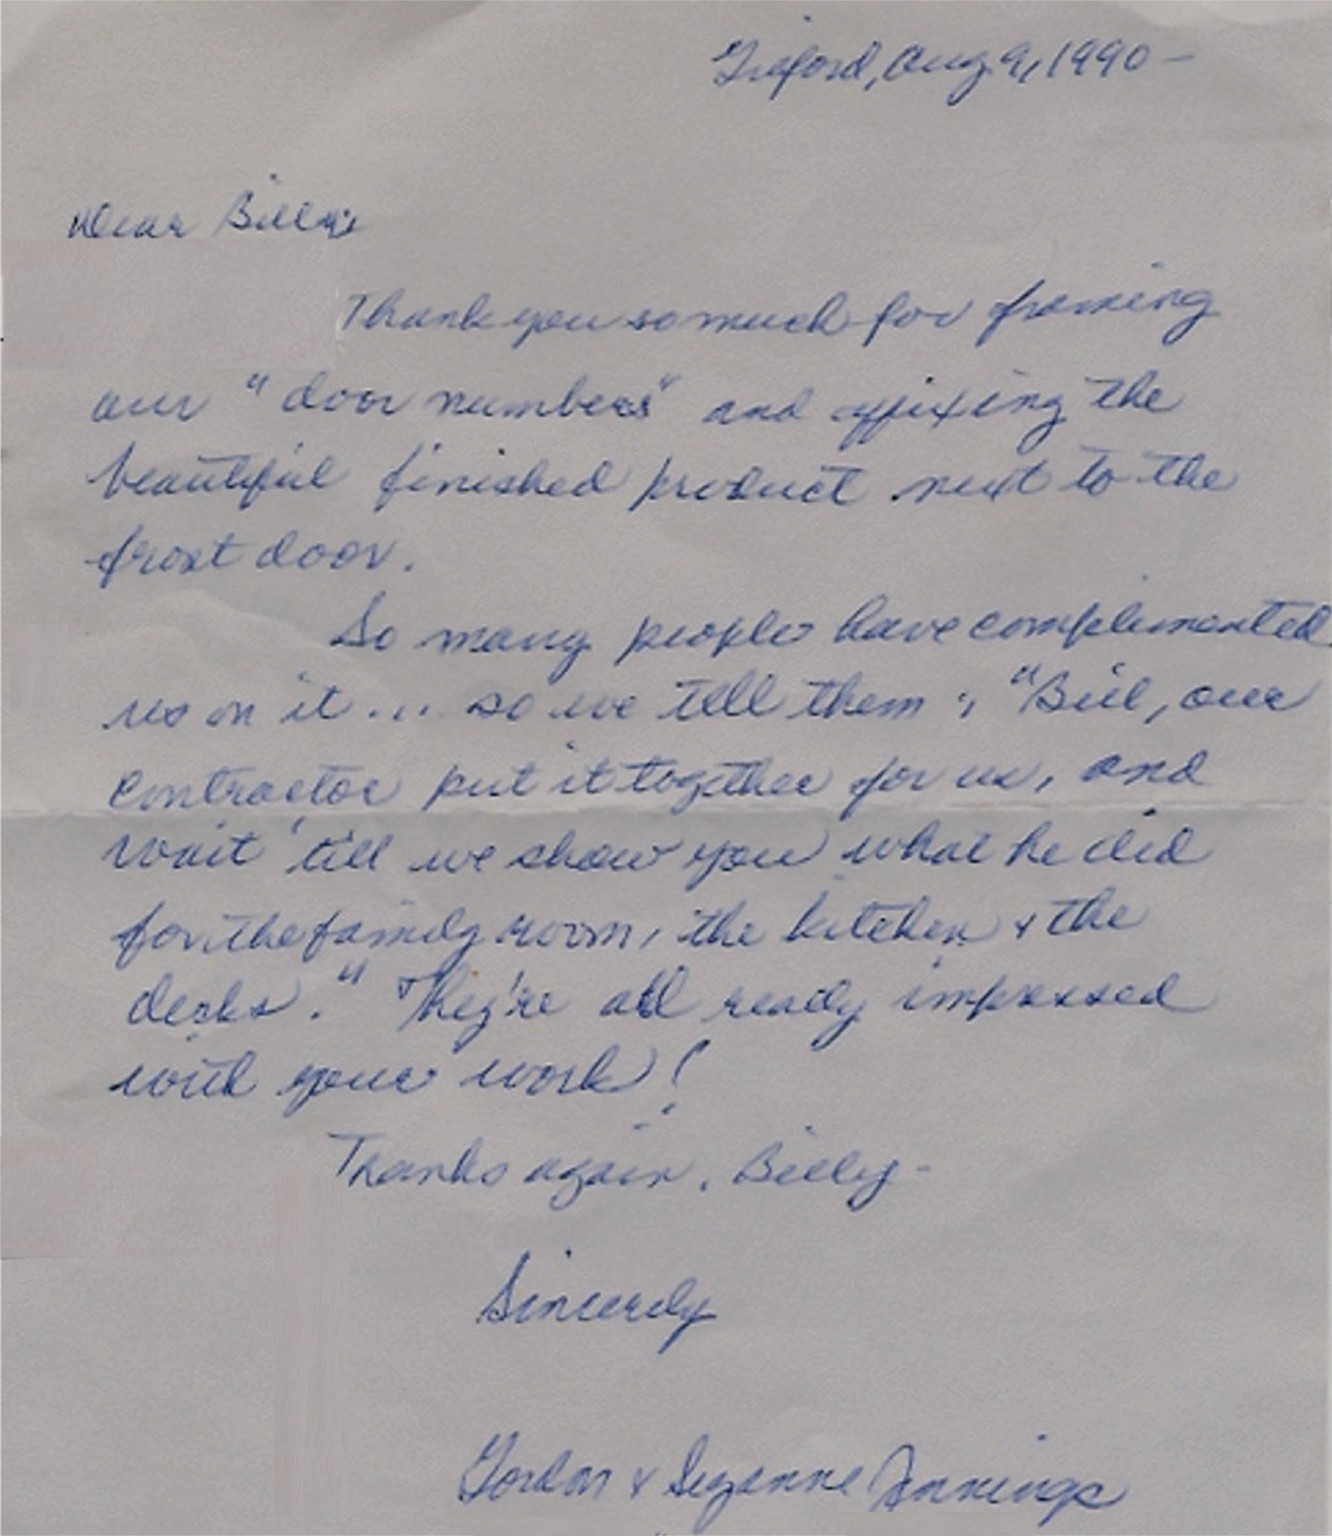 Gilford, Aug 9, 1990 -
Dear Billy:
Thank you so much for framing
our "door numbers" and affixing the
beautiful finished product next to the
front door.
So many people have complimented
us on it... so we tell them; "Bill, our
contractor put it together for us, and
wait 'till we show you what he did
for the family room, the kitchen & the
decks." They're all really impressed
with your work!
Thanks again, Billy -
Sincerely
Gordon & Suzanne Jennings